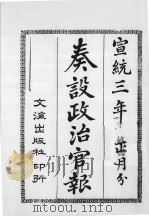 宣統三年 月分
奏設政治官報
文海出版社印